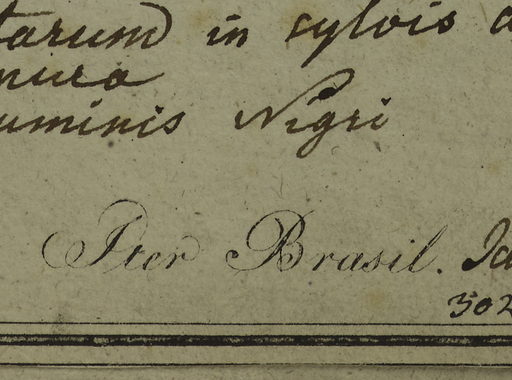 tarum in sylvis a
nura
uminis Nigri
Iter Brasil. Ja
302